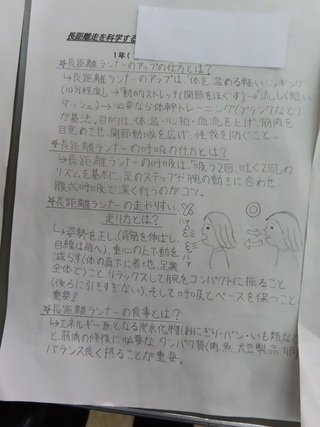 長距離走を科学する
1年(
※長距離ランナーのアップの仕方とは?
↳長距離ランナーのアップは、「体を温める軽いジョギング
(10分程度)」→「動的ストレッチ(関節をほぐす)→「流し(短い
ダッシュ)→必要なら体幹トレーニング(プランクなど)
が基本。目的は、体温・心拍・血流を上げ、筋肉を
目覚めさせ、関節動域を広げ、怪我を防ぐこと。
※長距離ランナーの呼吸の仕方とは?
↳長距離ランナーの呼吸は、「吸う2回、吐く2回」の
リズムを基本に、足のステップや腕の動きに合わせ、
腹式呼吸で深く行うのがコツ。
※長距離ランナーの走りやすい
走り方とは?
↳姿勢を正し(背筋を伸ばし、
目線は前へ)、重心の上下動を
減らす(体の真下に着地、足裏
全体で)こと、リラックスして腕をコンパクトに振ること
(後ろに引きすぎない)、そして呼吸とペースを保つことが
重要!!
※長距離ランナーの食事とは?
↳エネルギー源となる炭水化物(おにぎり・パン・いも類など)
と、筋肉の修復に必要な、タンパク質(肉、魚、大豆製品、卵)
バランス良く摂ることが重要。
ハァ
ハァ
◎